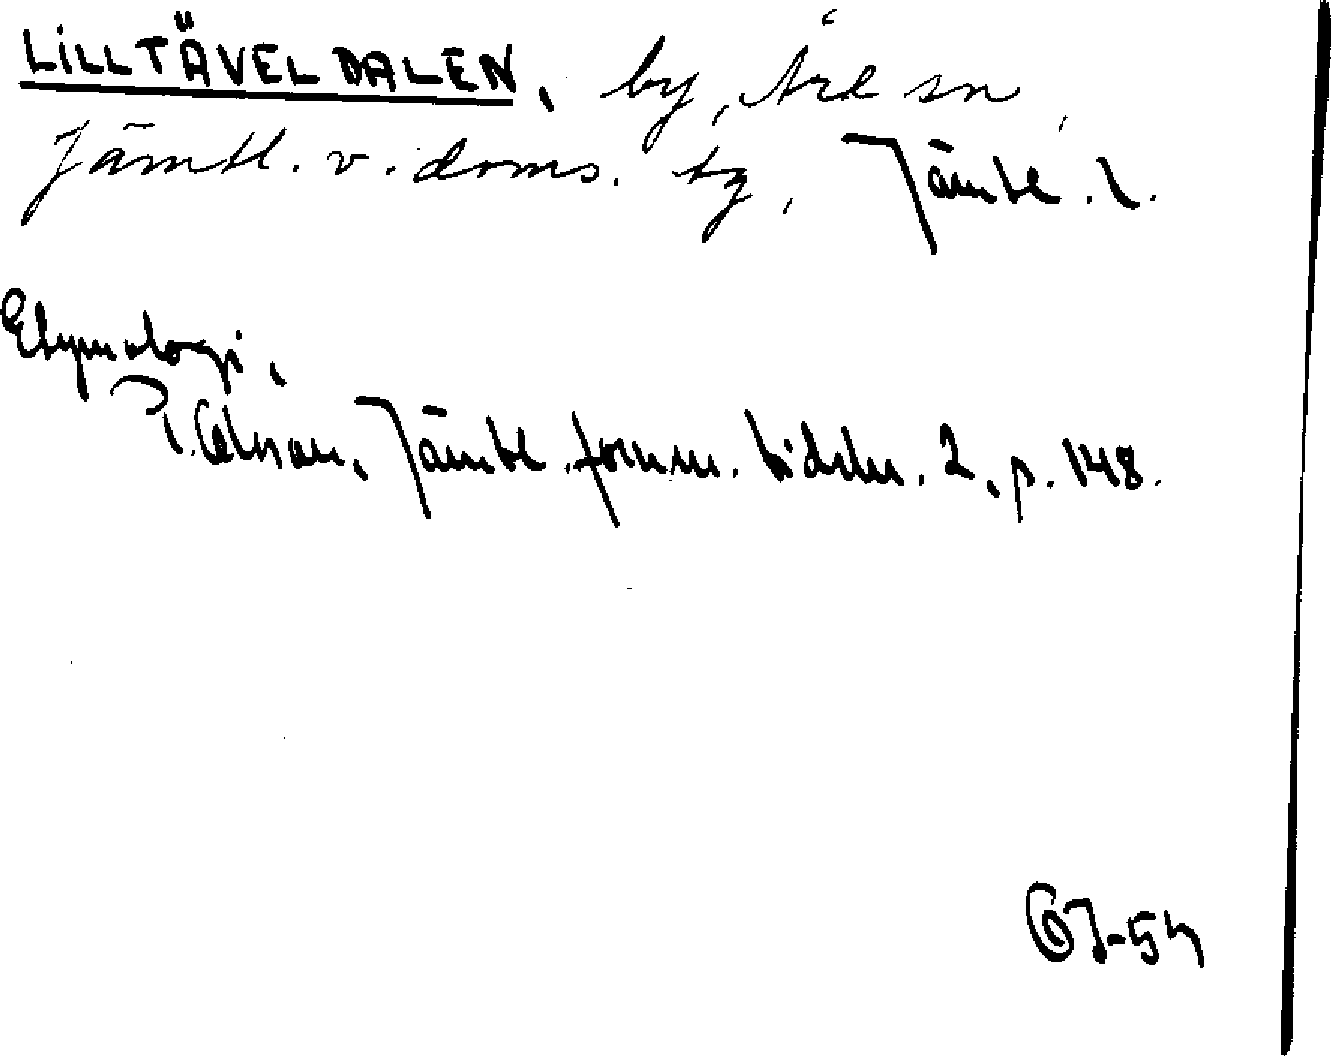 LILLTÄVELDALEN, by, Åre sn,
Jämtl. v. doms. tg, Jämtl. l.
Etymologi,
P. Olsson, Jämtl. fornm. tidskr. 2, p. 148.